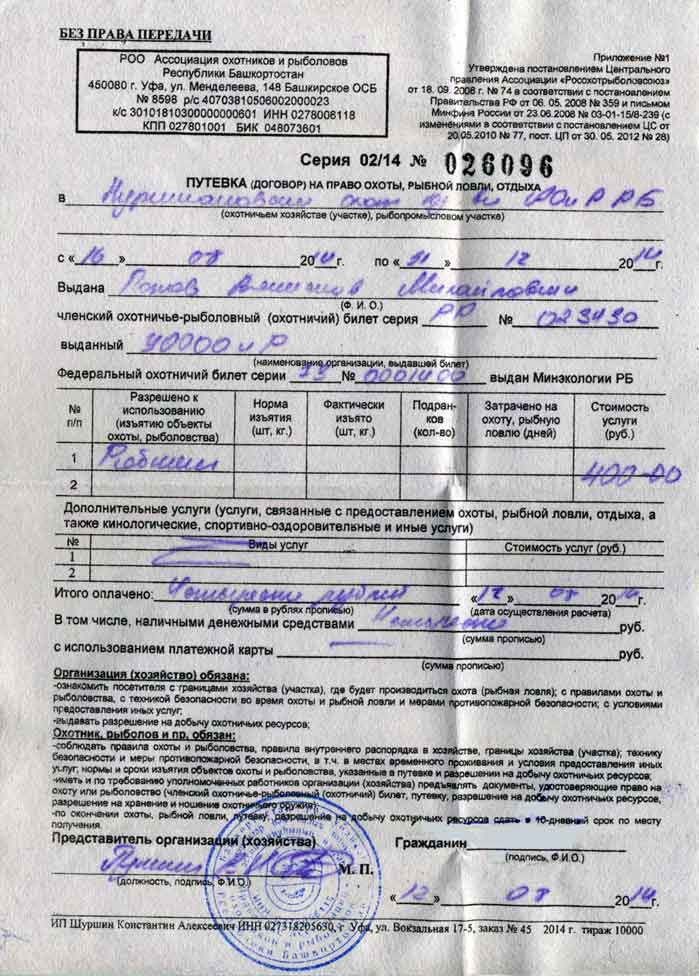 БЕЗ ПРАВА ПЕРЕДАЧИ
РОО Ассоциация охотников и рыболовов
Республики Башкортостан
450080 г. Уфа, ул. Менделеева, 148 Башкирское ОСБ
№ 8598 р/с 40703810506000200023
к/с 30101810300000000601 ИНН 0278006118
КПП 027801001 БИК 048073601
Приложение №1
Утверждена постановлением Центрального
правления Ассоциации «Росохотрыболовсоюз»
от 18. 09. 2008 г. № 74 в соответствии с постановлением
Правительства РФ от 06. 05. 2008 № 359 и письмом
Минфина России от 23.06.2008 № 03-01-15/8-239 (с
изменениями в соответствии с постановлением ЦС от
20.05.2010 № 77, пост. ЦП от 30. 05. 2012 № 28)
Серия 02/14 № 026096
ПУТЕВКА (ДОГОВОР) НА ПРАВО ОХОТЫ, РЫБНОЙ ЛОВЛИ, ОТДЫХА
в РОиР РБ
(охотничьем хозяйстве (участке), рыбопромысловом участке)
с «16» 08 2014г. по «31» 12 2014г.
Выдана Михайлович
(Ф. И. О.)
членский охотничье-рыболовный (охотничий) билет серия РР № 023430
выданный
(наименование организации, выдавшей билет)
Федеральный охотничий билет серии № 0001400 выдан Минэкологии РБ
№ п/п Разрешено к использованию (изъятию объекты охоты, рыболовства) Норма изъятия (шт, кг.) Фактически изъято (шт, кг.) Подранков (кол-во) Затрачено на охоту, рыбную ловлю (дней) Стоимость услуги (руб.)
1 400-00
2
Дополнительные услуги (услуги, связанные с предоставлением охоты, рыбной ловли, отдыха, а
также кинологические, спортивно-оздоровительные и иные услуги)
№ Виды услуг Стоимость услуг (руб.)
1
2
Итого оплачено: Четыреста рублей «12» 08 2014г.
(сумма в рублях прописью) (дата осуществления расчета)
В том числе, наличными денежными средствами Четыреста руб.
(сумма прописью)
с использованием платежной карты руб.
(сумма прописью)
Организация (хозяйство) обязана:
-ознакомить посетителя с границами хозяйства (участка), где будет производиться охота (рыбная ловля); с правилами охоты и
рыболовства, с техникой безопасности во время охоты и рыбной ловли и мерами противопожарной безопасности; с условиями
предоставления иных услуг;
-выдавать разрешение на добычу охотничьих ресурсов;
Охотник, рыболов и пр. обязан:
-соблюдать правила охоты и рыболовства, правила внутреннего распорядка в хозяйстве, границы хозяйства (участка); технику
безопасности и меры противопожарной безопасности, в т.ч. в местах временного проживания и условия предоставления иных
услуг; нормы и сроки изъятия объектов охоты и рыболовства, указанные в путевке и разрешении на добычу охотничьих ресурсов;
-иметь и по требованию уполномоченных работников организации (хозяйства) предъявлять документы, удостоверяющие право на
охоту или рыболовство (членский охотничье-рыболовный (охотничий) билет, путевку, разрешение на добычу охотничьих ресурсов,
разрешение на хранение и ношение охотничьего оружия);
-по окончании охоты, рыбной ловли, путевку, разрешение на добычу охотничьих ресурсов сдать в 10-дневный срок по месту
получения.
Представитель организации (хозяйства) Гражданин
М. П.
(должность, подпись, Ф.И.О.) (подпись, Ф.И.О.)
«12» 08 2014г.
ИП Шуршин Константин Алексеевич ИНН 027318205630, г. Уфа, ул. Вокзальная 17-5, заказ № 45 2014 г. тираж 10000